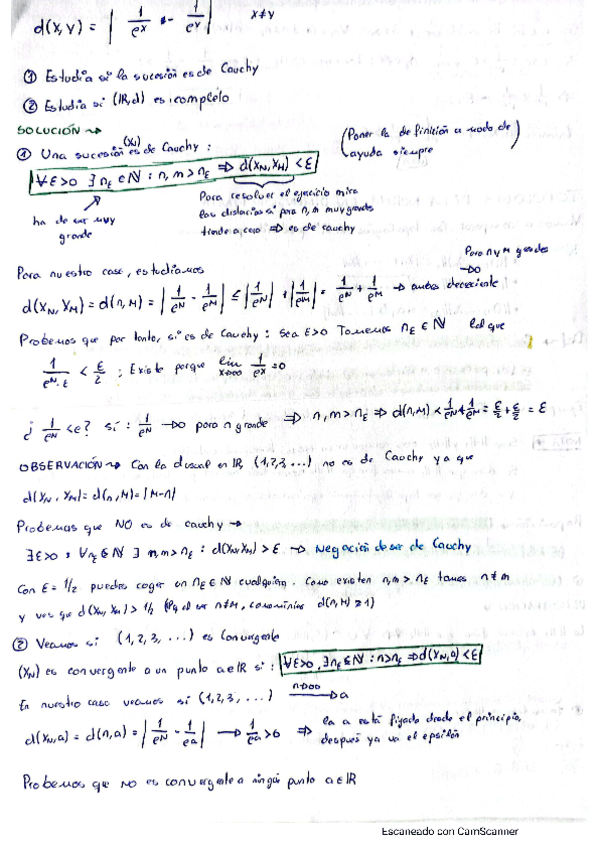 d(x,y) = | 1/e^x - 1/e^y | x≠y
① Estudia si la sucesión es de Cauchy
② Estudia si (IR,d) es completo
SOLUCIÓN ⇝
① Una sucesión (xₙ) es de Cauchy : (Poner la definición a modo de ayuda siempre)
∀ε>0 ∃ n_ε ∈ ℕ : n,m > n_ε ⇒ d(x_N, x_M) < ε
ha de ser muy grande
Para resolver el ejercicio mira las distancias si para n,m muy grande tiende a cero ⇒ es de cauchy
Para n y M grandes →0
Para nuestro caso, estudiamos
d(x_N, x_M) = d(n,M) = | 1/e^N - 1/e^M | ≤ | 1/e^N | + | 1/e^M | = 1/e^N + 1/e^M → ambas decreciente
Probemos que por tanto, si es de Cauchy : sea ε>0 Tomemos n_ε ∈ ℕ tal que
1/e^{N_ε} < ε/2 ; Existe porque lim x→∞ 1/e^x = 0
¿ 1/e^N < ε? Sí : 1/e^N →0 para n grande ⇒ n,m > n_ε ⇒ d(n,M) < 1/e^N + 1/e^M = ε/2 + ε/2 = ε
OBSERVACIÓN ⇝ Con la d usual en IR, (1,2,3,...) no es de Cauchy ya que
d(x_N, x_M) = d(n,M) = |M-n|
Probemos que NO es de cauchy →
∃ε>0 : ∀n_ε ∈ ℕ ∃ n,m > n_ε : d(x_N, x_M) > ε → Negación de ser de Cauchy
Con ε = 1/2 puedes coger un n_ε ∈ ℕ cualquiera. Como existen n,m > n_ε tomas n≠m
y ves que d(x_N, x_M) > 1/2 (Pq al ser n≠M, como mínimo d(n,M) ≥ 1)
② Veamos si (1,2,3,...) es Convergente
(x_N) es convergente a un punto a∈IR si : ∀ε>0, ∃n_ε ∈ ℕ : n>n_ε ⇒ d(x_N,a) < ε
En nuestro caso veamos si (1,2,3,...) n→∞ → a
d(x_N,a) = d(n,a) = | 1/e^N - 1/e^a | → 1/e^a > 0 ⇒ la a está fijada desde el principio, después ya va el epsilon
Probemos que no es convergente a ningún punto a∈IR
Escaneado con CamScanner